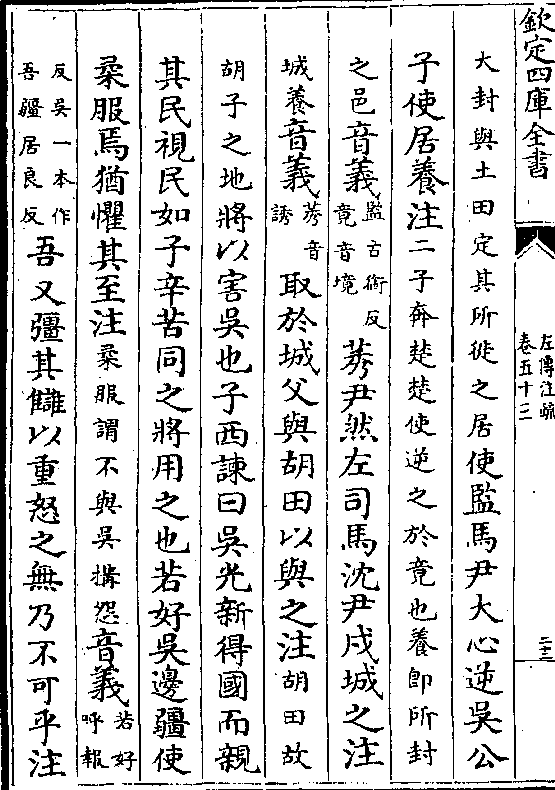 欽定四庫全書
左傳注疏
卷五十三
二十三
大封與土田定其所徙之居使監馬尹大心逆吳公
子使居養注二子奔楚楚使逆之於竟也養即所封
之邑音義監古銜反竟音境莠尹然左司馬沈尹戌城之注
城養音義莠音誘取於城父與胡田以與之注胡田故
胡子之地將以害吳也子西諫曰吳光新得國而親
其民視民如子辛苦同之將用之也若好吳邊疆使
柔服焉猶懼其至注柔服謂不與吳搆怨音義若好呼報
反吳一本作吾疆居良反吾又彊其讎以重怒之無乃不可乎注